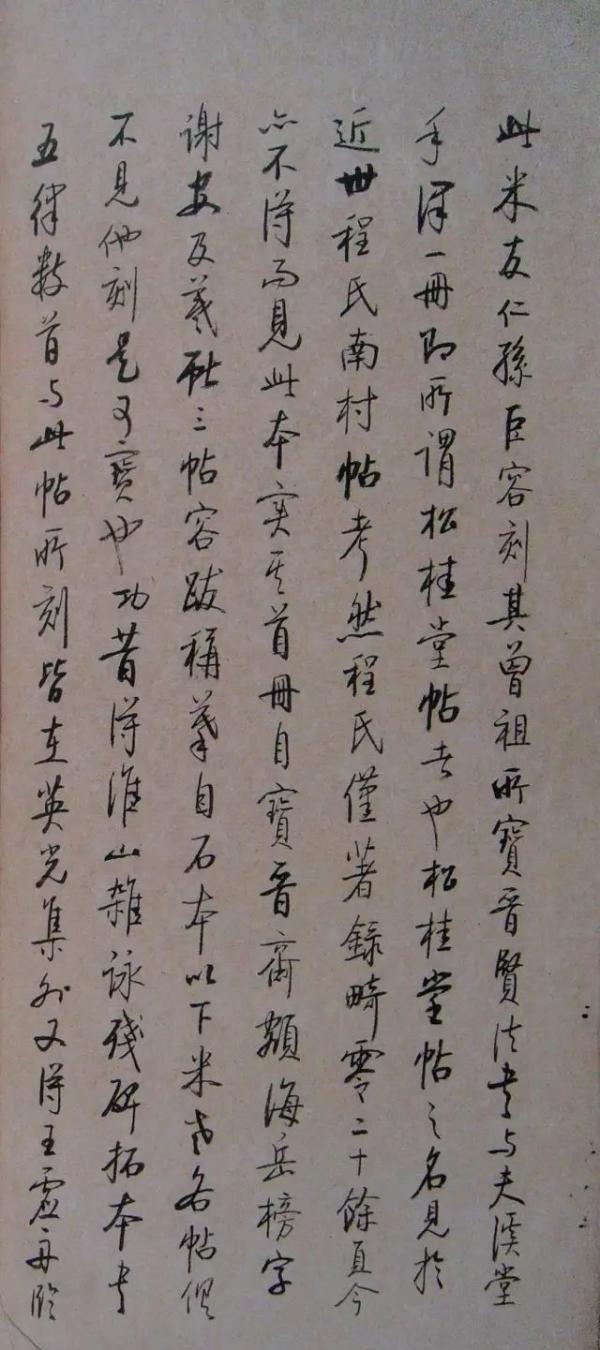 此米友仁孫巨容刻其曾祖所寶晉賢法書与夫溪堂
手澤一冊即所謂松桂堂帖者也松桂堂帖之名見於
近世程氏南村帖考然程氏僅著錄畸零二十餘頁今
亦不得而見此本實其首冊自寶晉齋額海岳榜字
謝安及羲獻三帖容跋稱摹自石本以下米書各帖俱
不見他刻是可寶也功昔得淮山雜詠殘碑拓本書
五律數首与此帖所刻皆在英光集外又得王虛舟臨